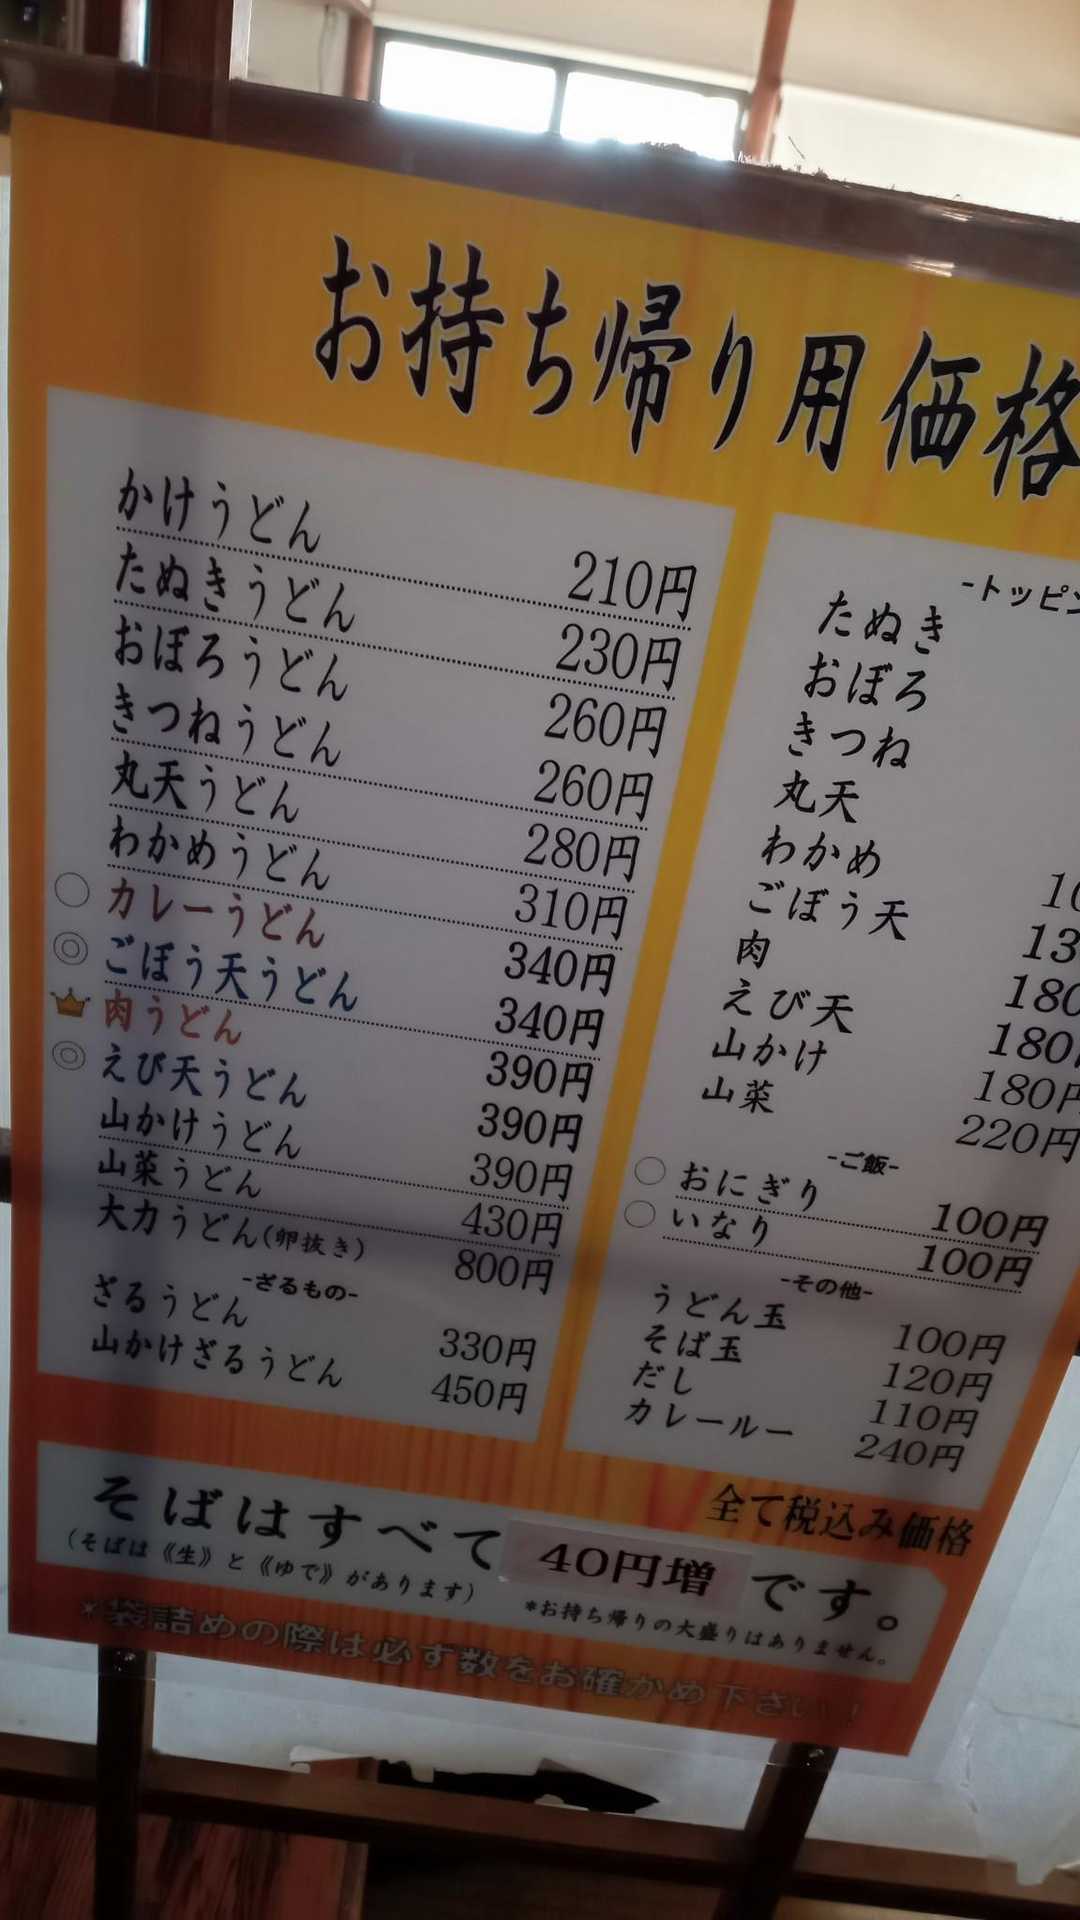 お持ち帰り用価格
かけうどん 210円
たぬきうどん 230円
おぼろうどん 260円
きつねうどん 260円
丸天うどん 280円
わかめうどん 310円
○ カレーうどん 340円
◎ ごぼう天うどん 340円
肉うどん 390円
◎ えび天うどん 390円
山かけうどん 390円
山菜うどん 430円
大力うどん(卵抜き) 800円
-ざるもの-
ざるうどん 330円
山かけざるうどん 450円
-トッピン
たぬき
おぼろ
きつね
丸天
わかめ
ごぼう天
肉 180
えび天 180
山かけ 180円
山菜 220円
-ご飯-
○ おにぎり 100円
○ いなり 100円
-その他-
うどん玉 100円
そば玉 120円
だし 110円
カレールー 240円
全て税込み価格
そばはすべて 40円増 です。
(そばは《生》と《ゆで》があります)
*お持ち帰りの大盛りはありません。
*袋詰めの際は必ず数をお確かめ下さい!